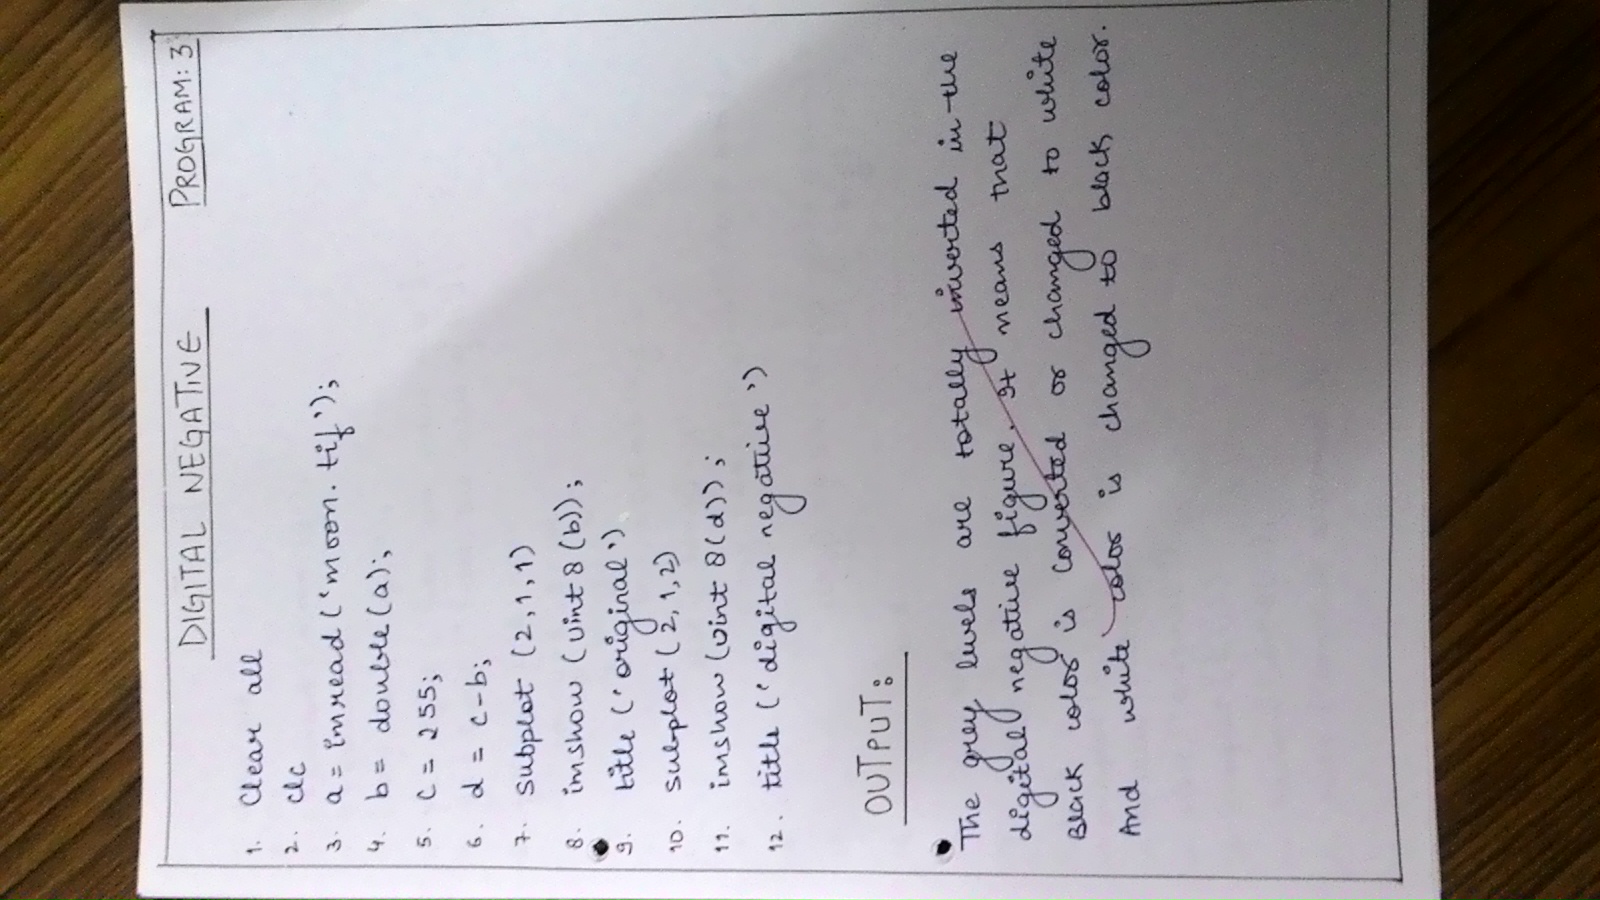 DIGITAL NEGATIVE PROGRAM: 3
1. Clear all
2. clc
3. a = imread ('moon.tif');
4. b = double (a);
5. C = 255;
6. d = c-b;
7. Subplot (2,1,1)
8. imshow (uint 8 (b));
9. title ('original')
10. Subplot (2,1,2)
11. imshow (uint 8(d));
12. title ('digital negative')
OUTPUT:
The grey levels are totally inverted in the
digital negative figure. It means that
Black color is converted or changed to white
And white color is changed to black color.